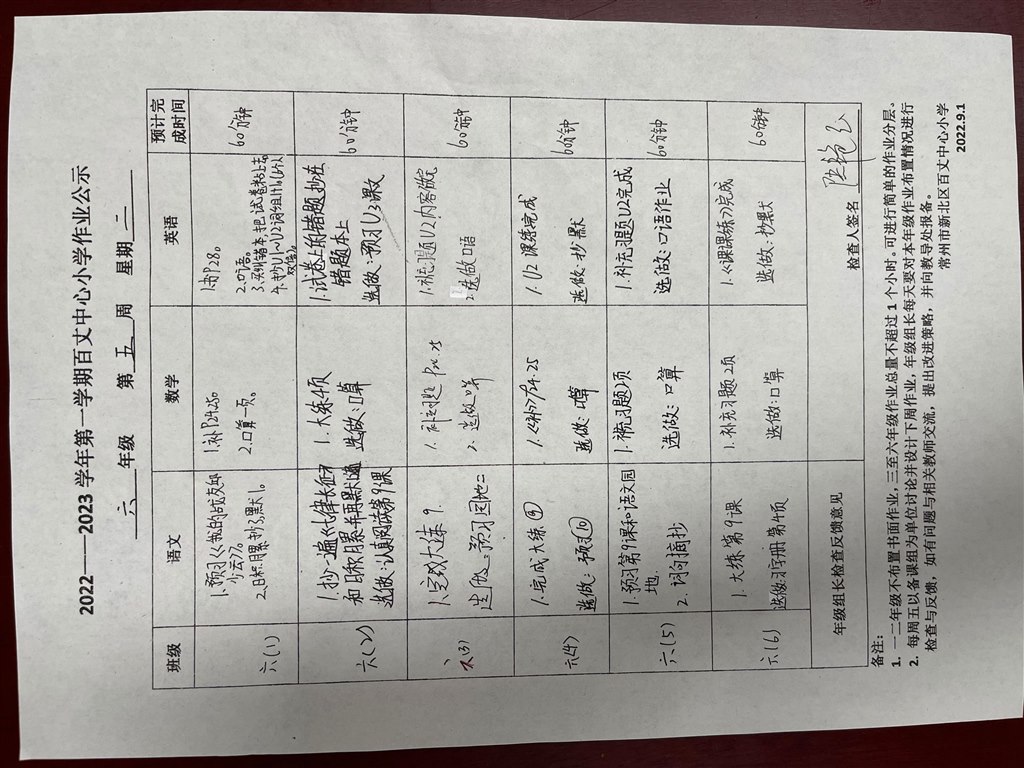 2022——2023 学年第一学期百丈中心小学作业公示
六 年级 第 五 周 星期 二
班级 语文 数学 英语 预计完成时间
六(1)
1.预习《我的战友邱少云》。
2.日积月累抄3默1。
1.补P24.25。
2.口算一页。
1.补P28。
2.听读。
4.抄U1~U2词组
60分钟
六(2)
1.抄一遍《七律长征》
和日积月累并再默1遍
选做:认真阅读第9课
1.大练4页
选做:口算
1.试卷上的错题抄在
错题本上
选做:预习U3课文
60分钟
六(3)
1.完成大练9.
选做:预习园地二
1.补充习题P24.25
2.选做口算
1.补充习题U2内容做完
2.选做口语
60分钟
六(4)
1.完成大练⑨
选做:预习⑩
1.《补》P24.25
选做:口算
1.U2 课练完成
选做:抄默
60分钟
六(5)
1.预习第9课和语文园
地.
2.词句摘抄
1.补充习题2页
选做:口算
1.补充习题U2完成
选做:口语作业
60分钟
六(6)
1.大练第9课
选做:习字册第4页
1.补充习题2页
选做:口算
1.《课课练》完成
选做:抄默
60分钟
年级组长检查反馈意见
检查人签名
备注:
1. 一二年级不布置书面作业,三至六年级作业总量不超过 1 个小时。可进行简单的作业分层。
2. 每周五以备课组为单位讨论并设计下周作业,年级组长每天要对本年级作业布置情况进行
检查与反馈,如有问题与相关教师交流,提出改进策略,并向教导处报备。
常州市新北区百丈中心小学
2022.9.1